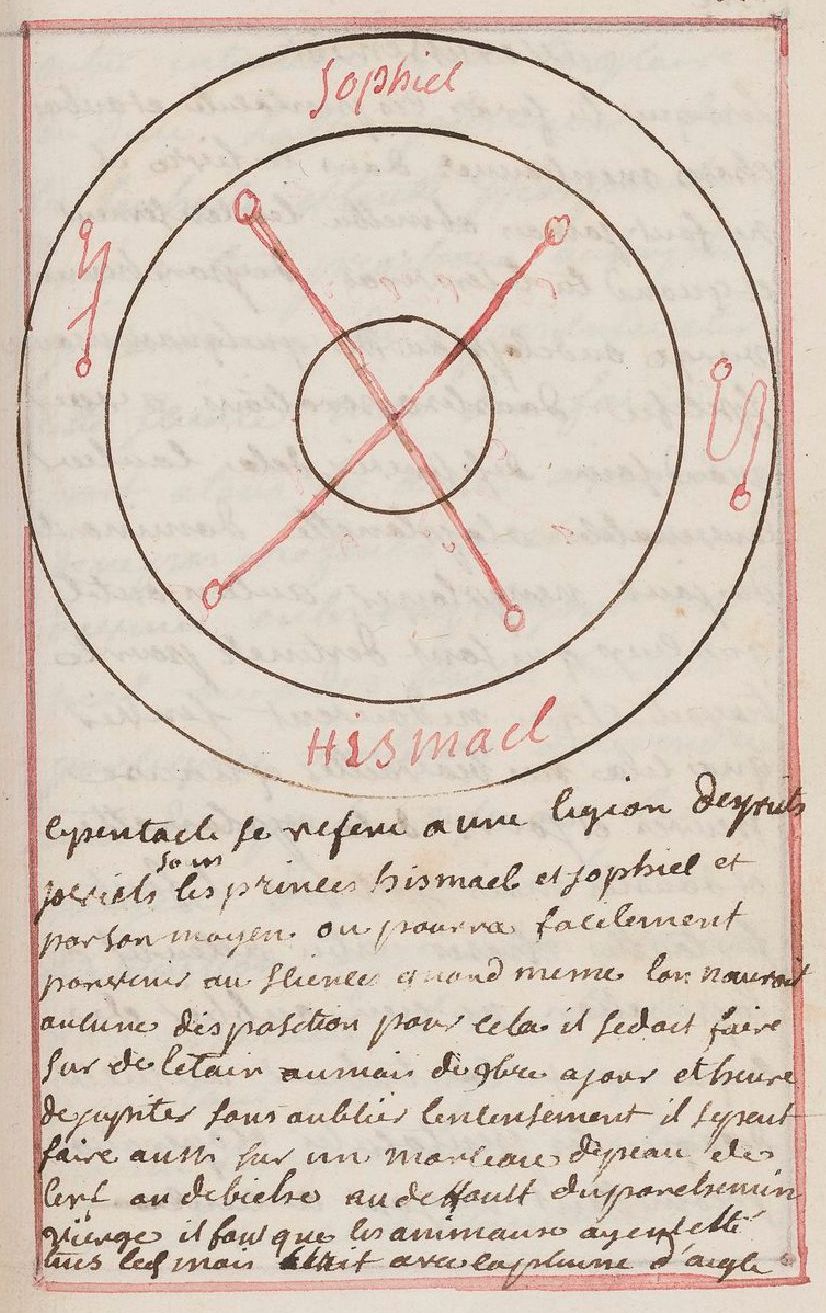 Sophiel
Hismael
le pentacle se refere a une legion desprits
jouiels sous les princes hismael et sophiel et
par son moyen on pourra facilement
parvenir au sciences quand meme lon nauroit
aucune disposition pour cela il se doit faire
sur de letain au mois de 9bre a jour et heure
de jupiter sans oublier lencensement il se peut
faire aussi sur un morceau de peau de
cerf ou de biche au deffault du parchemin
vierge il faut que les animaux ayent etté
tués led mois avec la plume d'aigle